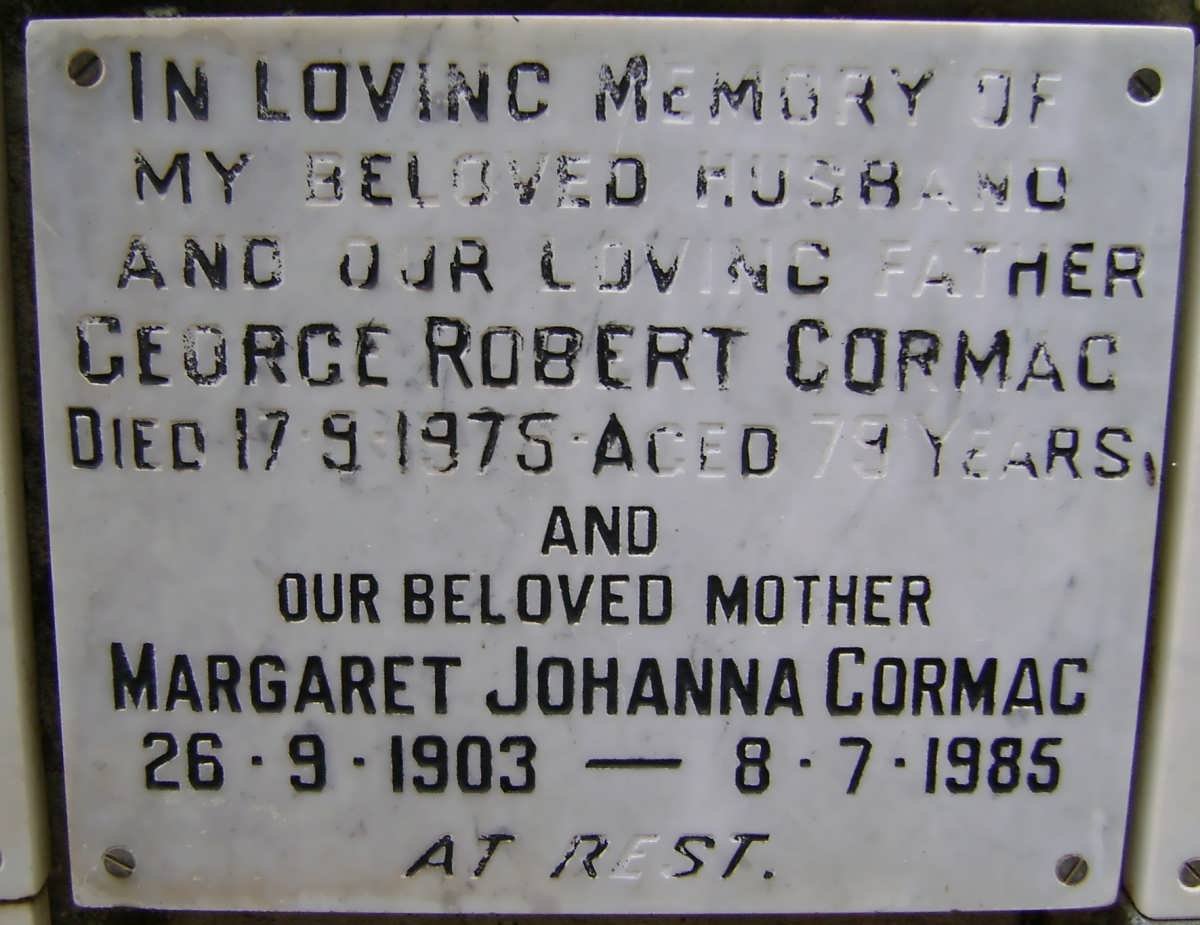 IN LOVING MEMORY OF
MY BELOVED HUSBAND
AND OUR LOVING FATHER
GEORGE ROBERT CORMAC
DIED 17·9·1975·AGED 79 YEARS,
AND
OUR BELOVED MOTHER
MARGARET JOHANNA CORMAC
26·9·1903 — 8·7·1985
AT REST.